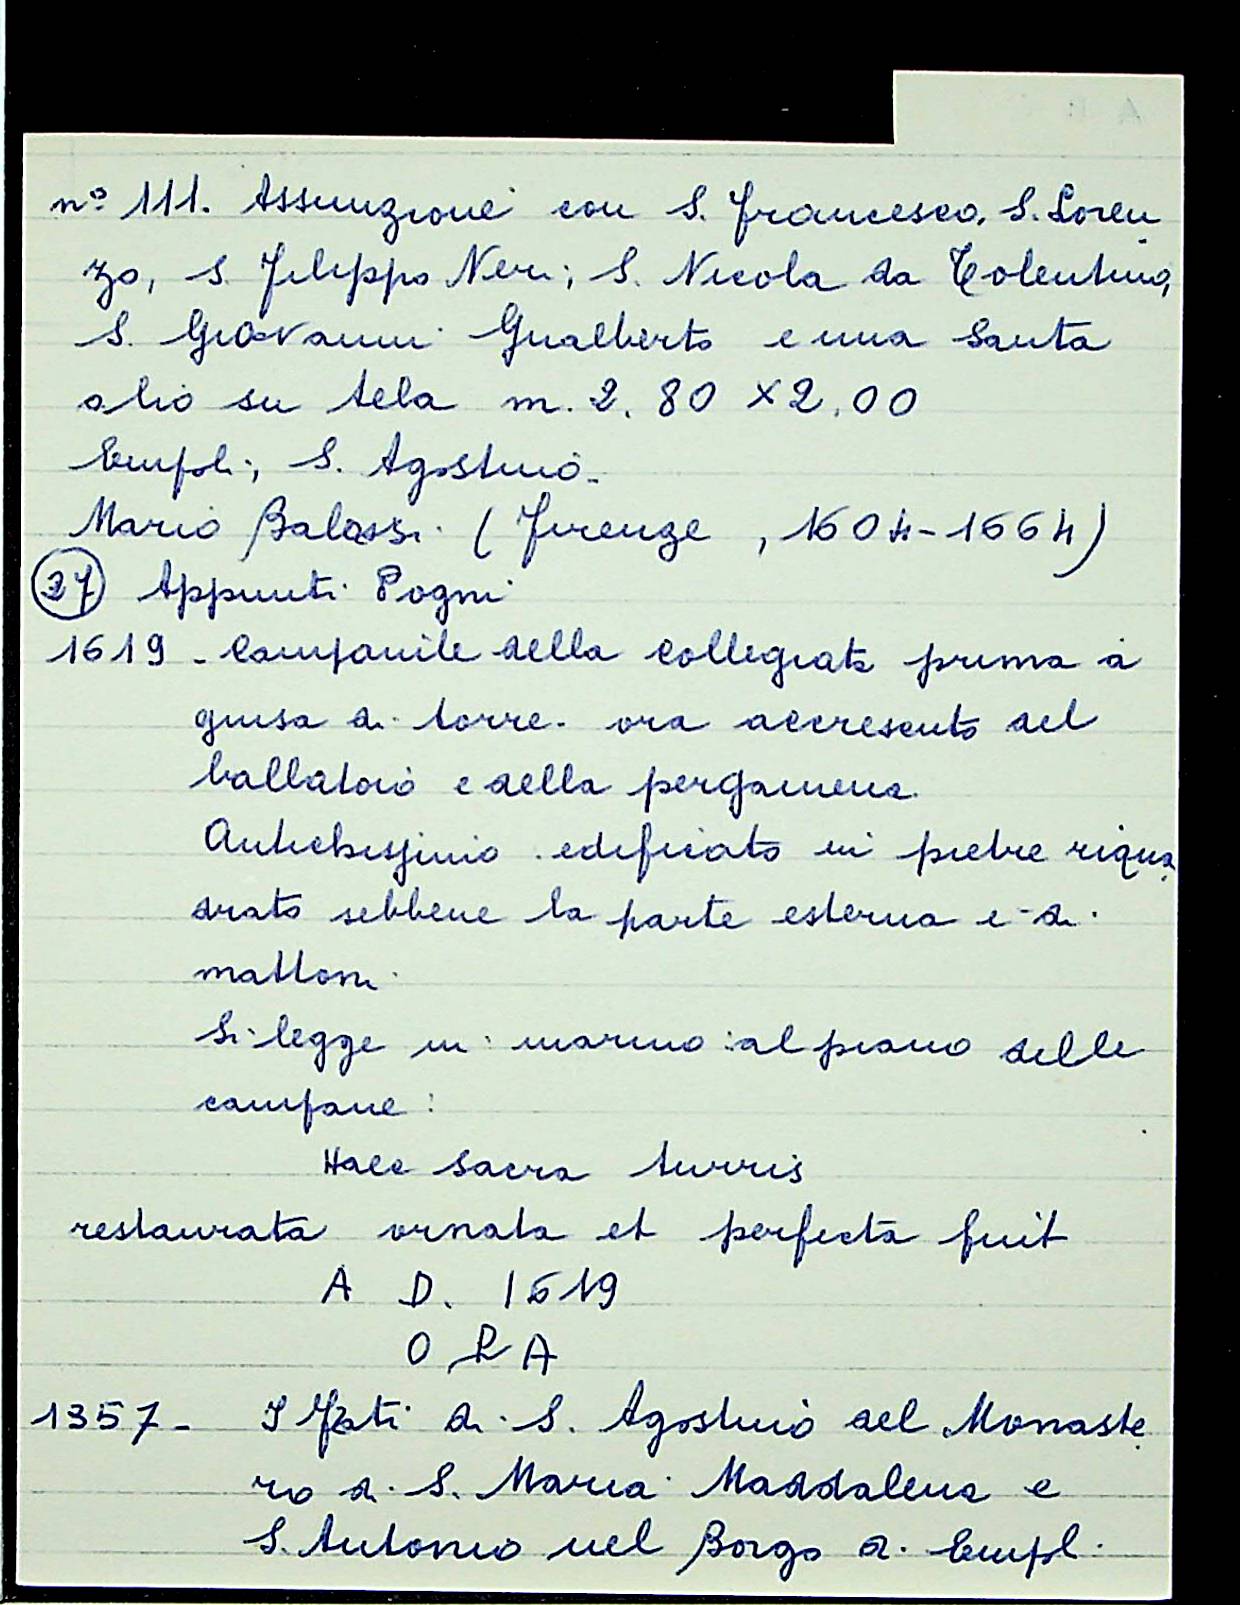 nº 111. Assunzione con S. Francesco, S. Loren
zo, S. Filippo Neri; S. Nicola da Tolentino,
S. Giovanni Gualberto e una Santa
olio su tela m. 2.80 x 2.00
Empoli, S. Agostino.
Mario Balassi (Firenze, 1604-1664)
27 Appunti Pogni
1619 - Campanile della Collegiata prima a
guisa di torre. ora accresciuto del
ballatoio e della pergamena.
Antichissimo edificato in pietre riqua
drato sebbene la parte esterna e di
mattoni.
Si legge in marmo al piano delle
campane:
Haec sacra turris
restaurata ornata et perfecta fuit
A D. 1619
O R A
1357 - I Frati di S. Agostino del Monaste
ro di S. Maria Maddalena e
S. Antonio nel Borgo di Empoli